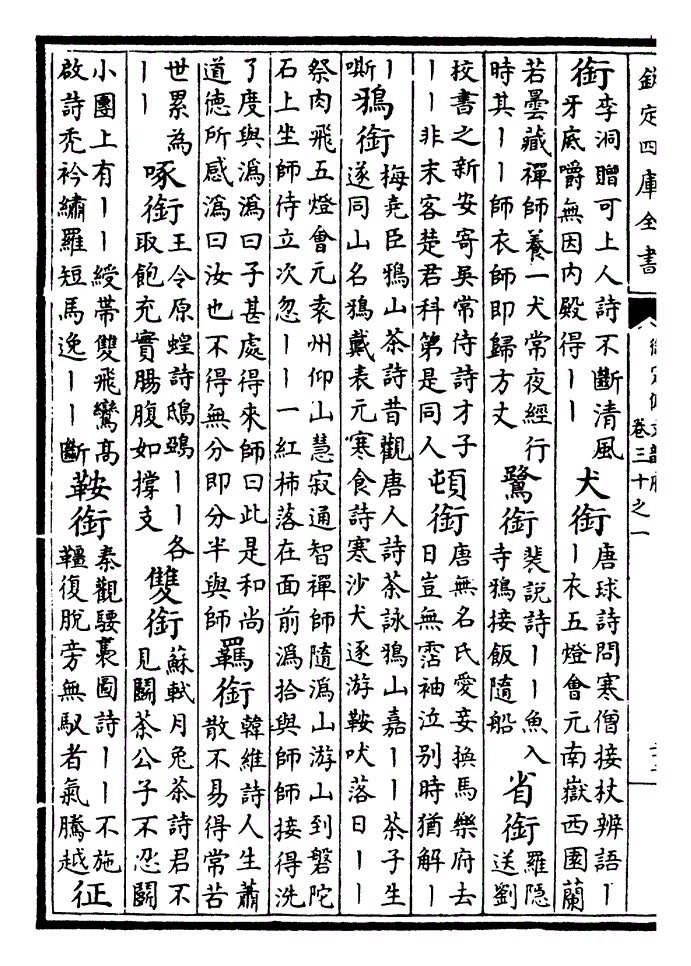 欽定四庫全書
卷三十之一
銜 李洞贈可上人詩不斷清風
牙底嚼無因内殿得丨丨
犬銜 唐球詩問寒僧接杖辨語丨
丨衣五燈會元南嶽西園蘭
若曇藏禪師養一犬常夜經行
時其丨丨師衣師即歸方丈
鷺銜 裴説詩丨丨魚入
寺鴉接飯隨船
省銜 羅隠
送劉
校書之新安寄吳常侍詩才子
丨丨非末客楚君科第是同人
頓銜 唐無名氏愛妾換馬樂府去
日豈無霑袖泣别時猶解丨
丨
嘶
鴉銜 梅堯臣鴉山茶詩昔觀唐人詩茶詠鴉山嘉丨丨茶子生
遂同山名鴉戴表元寒食詩寒沙犬逐游鞍吠落日丨丨
祭肉飛五燈會元袁州仰山慧寂通智禪師隨潙山游山到磐陀
石上坐師侍立次忽丨丨一紅柿落在面前潙拾與師師接得洗
了度與潙潙曰子甚處得來師曰此是和尚
道德所感潙曰汝也不得無分即分半與師
羈銜 韓維詩人生蕭
散不易得常苦
世累為
丨丨
啄銜 王令原蝗詩鴟鵶丨丨各
取飽充實腸腹如撑支
雙銜 蘇軾月兔茶詩君不
見鬭茶公子不忍鬭
小團上有丨丨綬帶雙飛鸞高
啟詩秃衿繡羅短馬逸丨丨斷
鞍銜 秦觀騕褭圖詩丨丨不施
韁復脱旁無馭者氣騰越
征